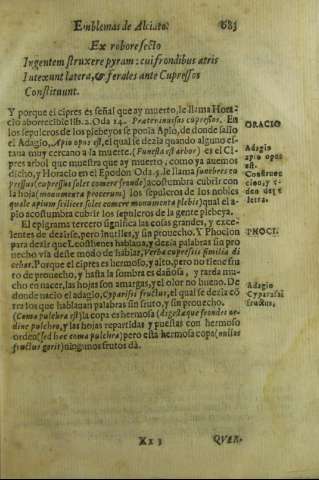 Emblemas de Alciato. 683
Ex robore secto
Ingentem struxere pyram: cui frondibus atris
Intexunt latera, & ferales ante Cupressos
Constituunt.
Y porque el cipres es señal que ay muerto, le llama Hora
cio aborrecible lib. 2. Oda 14. Præter inuisas cupressos. En
los sepulcros de los plebeyos se ponia Apio, de donde salio
el Adagio, Apio opus est, el qual se dezia quando alguno es-
taua muy cercano a la muerte. (Funesta est arbor) es el Ci
pres arbol que muestra que ay muerto, como ya auemos
dicho, y Horacio en el Epodon Oda 5. le llama funebres cu
pressus (cupressus solet comere fronde) acostumbra cubrir con
la hoja (monumenta procerum) los sepulcros de los nobles
quale apium scilicet solet comere monumenta plebis) qual el a-
pio acostumbra cubrir los sepulcros de la gente plebeya.
El epigrama tercero significa las cosas grandes, y exce-
lentes de dezirse, pero inutiles, y sin prouecho. Y Phocion
para dezir que Leosthenes hablaua, y dezia palabras sin pro
uecho via deste modo de hablar, Verba cupressis similia di
cebat. Porque el cipres es hermoso, y alto, pero no tiene fru
to de prouecho, y hasta la sombra es dañosa, y tarda mu-
cho en nacer, las hojas son amargas, y el olor no bueno. De
donde nacio el adagio, Cyparissi fructus, el qual se dezia cō
tra los que hablauan palabras sin fruto, y sin prouecho.
(Coma pulchra est) la copa es hermosa (digestæque frondes or-
dine pulchro, y las hojas repartidas y puestas con hermoso
orden (sed hæc coma pulchra) pero està hermosa copa (nullos
fructus gerit) ningunos frutos dà.
ORACIO
Adagio
apio opus
est.
PHOCI.
Adagio
Cyparissi
fructus,
Xx 3 QVER-